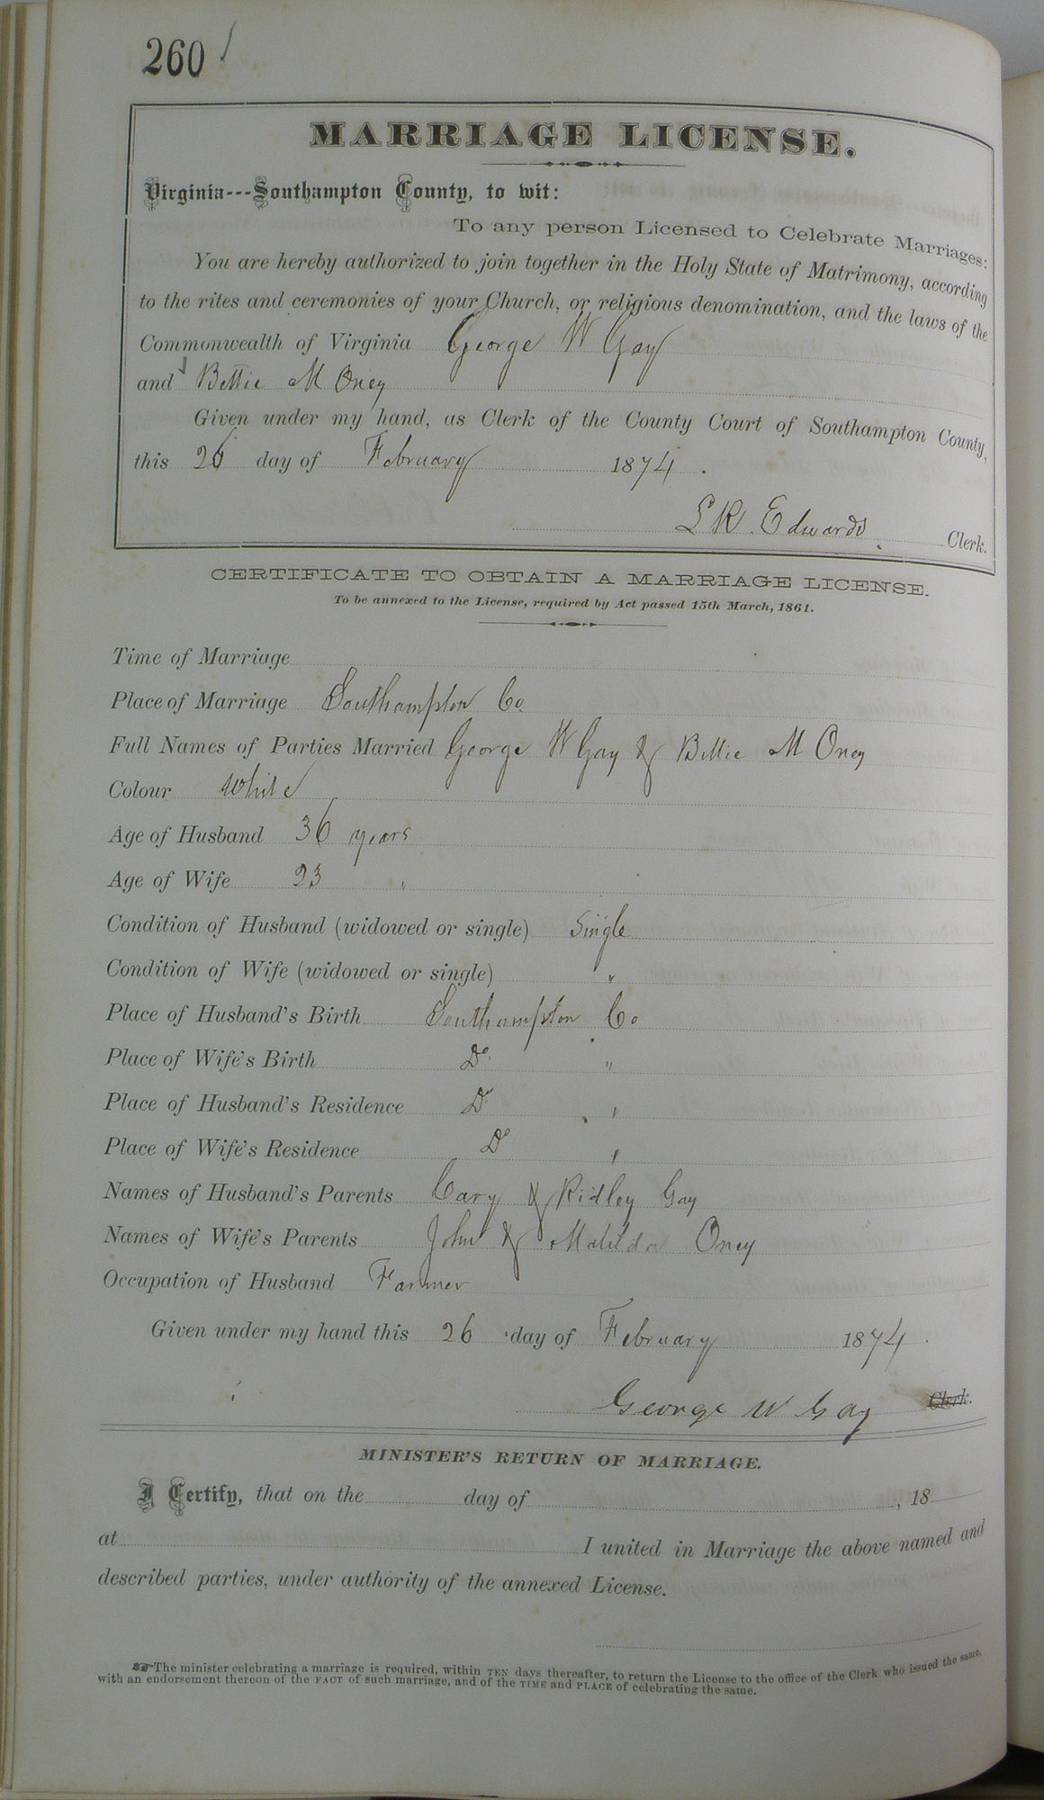 260
MARRIAGE LICENSE.
Virginia---Southampton County, to wit:
To any person Licensed to Celebrate Marriages:
You are hereby authorized to join together in the Holy State of Matrimony, according
to the rites and ceremonies of your Church, or religious denomination, and the laws of the
Commonwealth of Virginia George W Gay
and Bettie M Oney
Given under my hand, as Clerk of the County Court of Southampton County,
this 26 day of February 1874.
L R Edwards Clerk.
CERTIFICATE TO OBTAIN A MARRIAGE LICENSE.
To be annexed to the License, required by Act passed 15th March, 1861.
Time of Marriage
Place of Marriage Southampton Co.
Full Names of Parties Married George W Gay & Bettie M Oney
Colour White
Age of Husband 36 years
Age of Wife 23 "
Condition of Husband (widowed or single) Single
Condition of Wife (widowed or single) "
Place of Husband's Birth Southampton Co
Place of Wife's Birth Do "
Place of Husband's Residence Do "
Place of Wife's Residence Do "
Names of Husband's Parents Cary & Ridley Gay
Names of Wife's Parents John & Matilda Oney
Occupation of Husband Farmer
Given under my hand this 26 day of February 1874.
George W Gay Clerk.
MINISTER'S RETURN OF MARRIAGE.
I Certify, that on the day of , 18
at I united in Marriage the above named and
described parties, under authority of the annexed License.
☞The minister celebrating a marriage is required, within TEN days thereafter, to return the License to the office of the Clerk who issued the same,
with an endorsement thereon of the FACT of such marriage, and of the TIME and PLACE of celebrating the same.